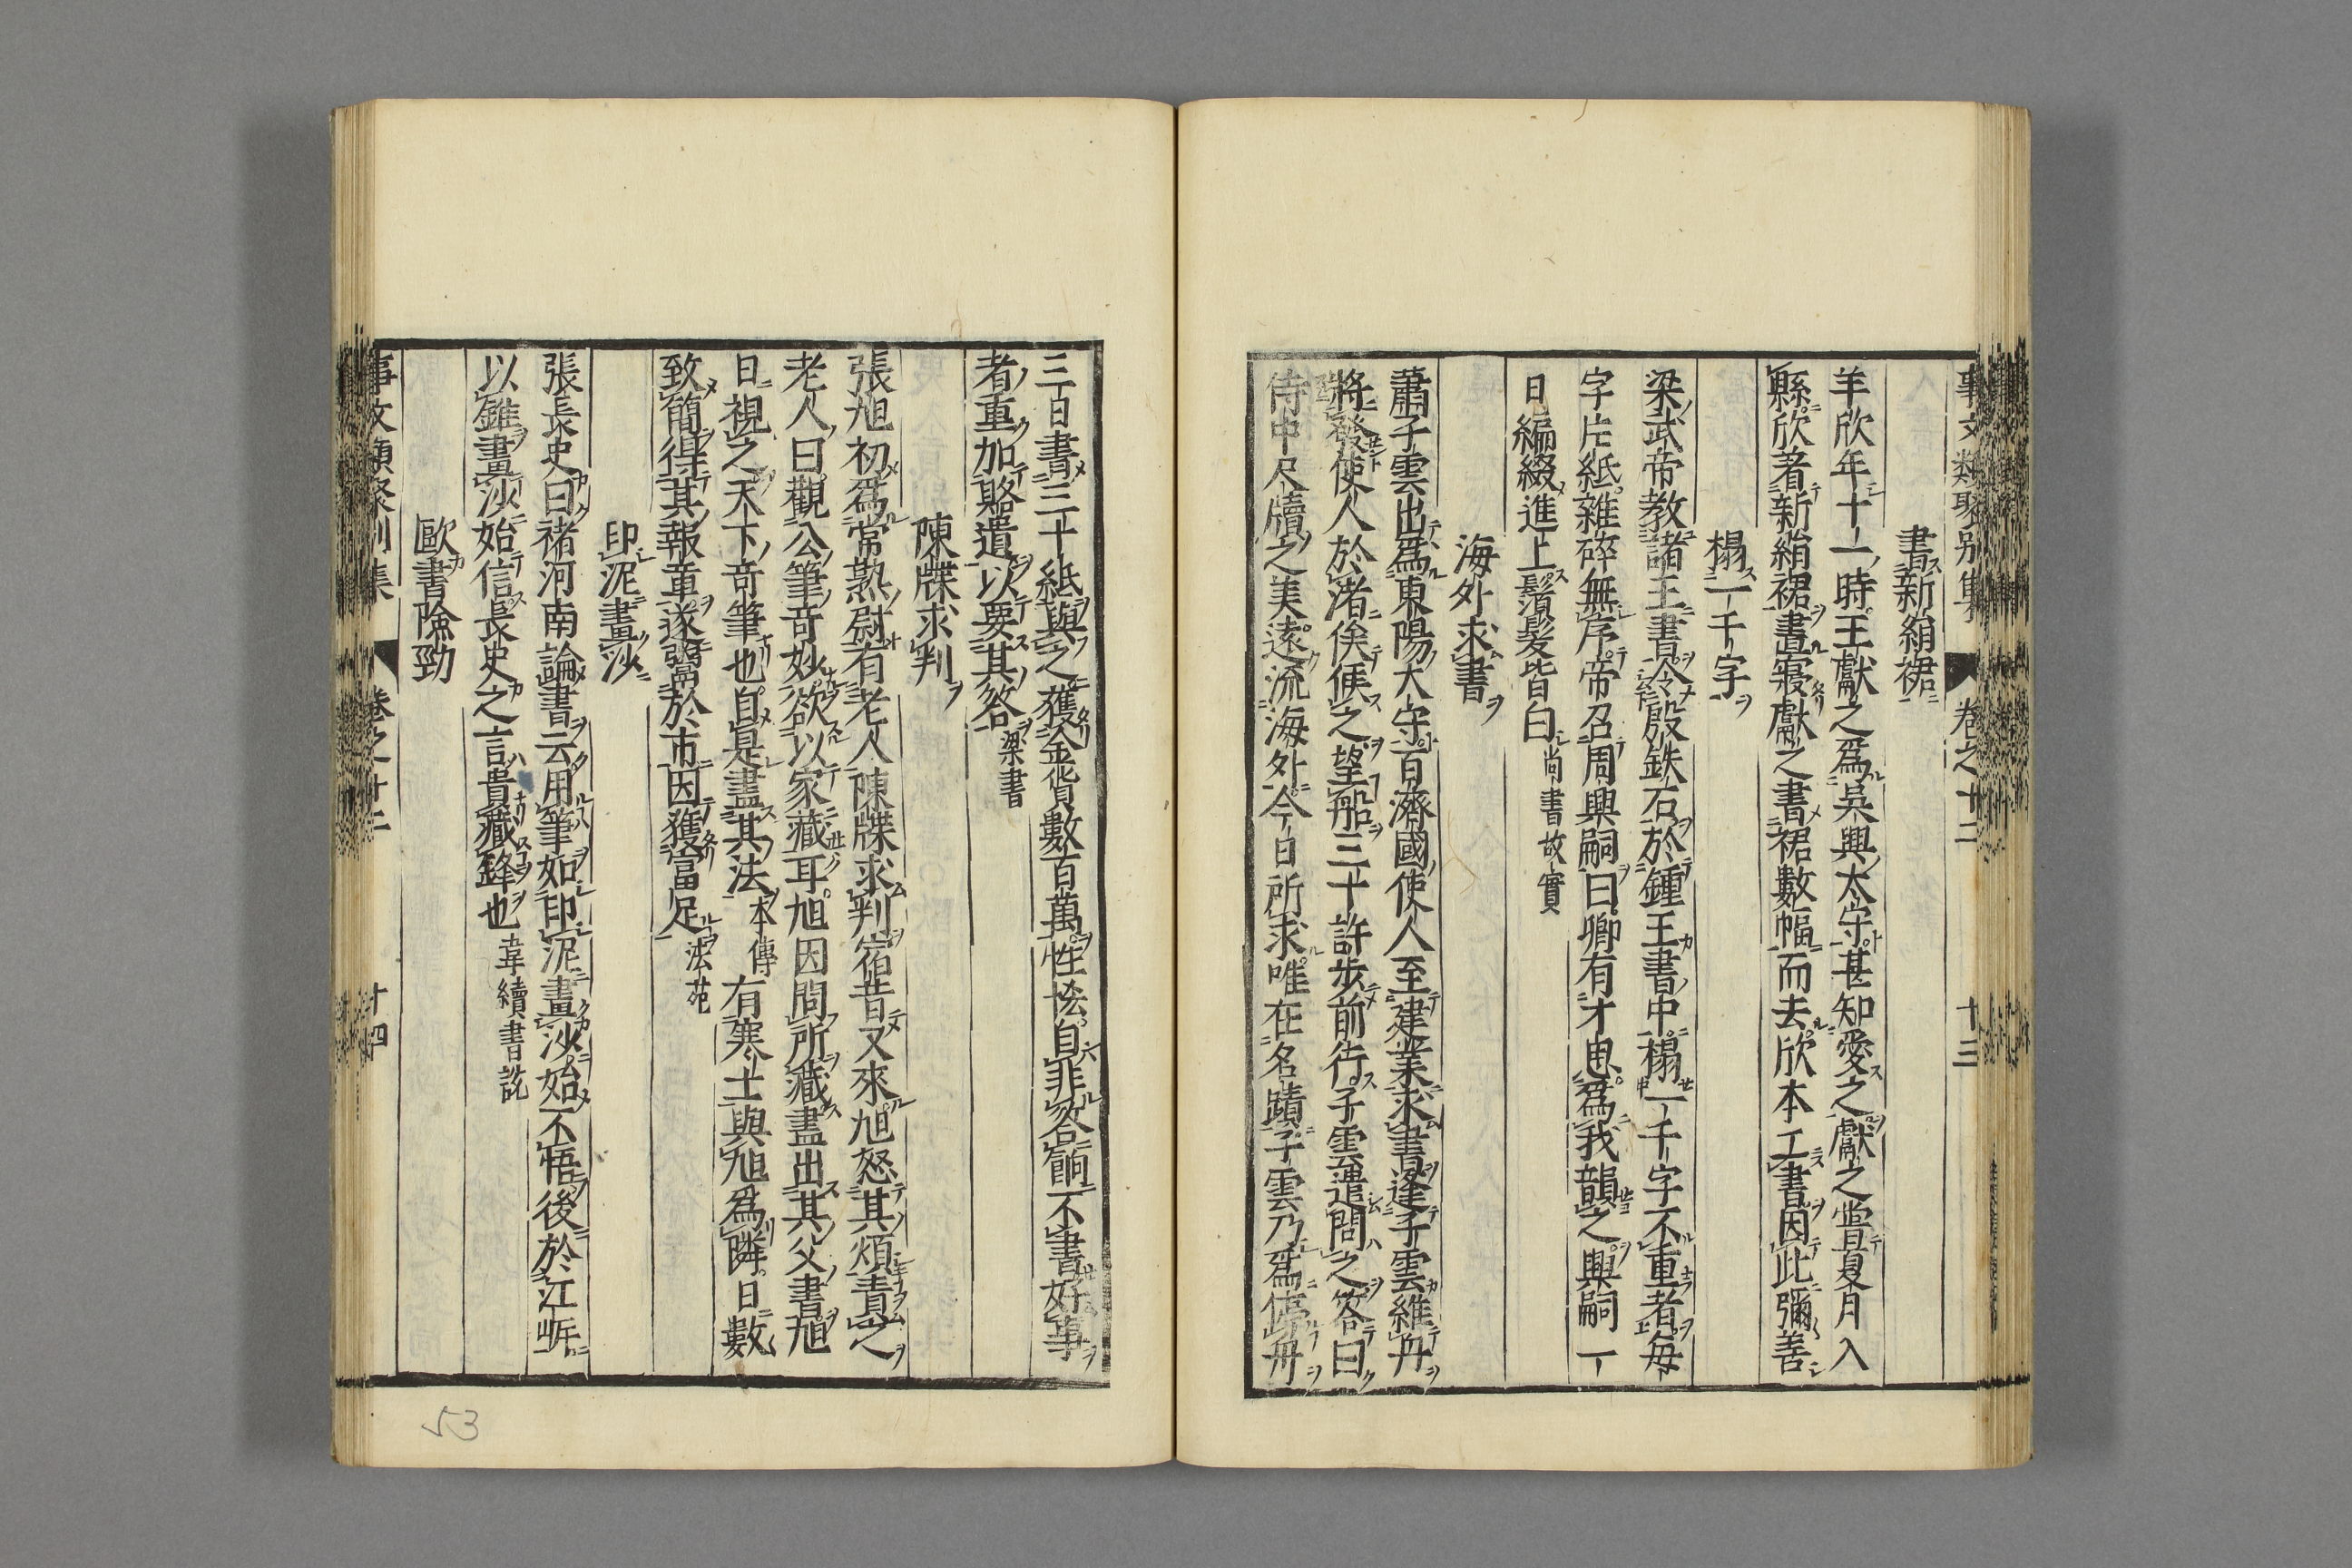 事文類聚別集 卷之十二 十三
書新絹裙
羊欣年十一時王獻之爲吳興太守甚知愛之獻之嘗夏月入
縣欣著新絹裙晝寢獻之書裙數幅而去欣本工書因此彌善
榻一千字
梁武帝教諸王書令殷鉄石於鍾王書中榻一千字不重者毎
字片紙雜碎無序帝召周興嗣曰卿有才思爲我韻之興嗣一
日編綴進上鬚髮皆白尚書故實
海外求書
蕭子雲出爲東陽大守百濟國使人至建業求書逢子雲維舟
將發使人於渚侯候之望船三十許步前行子雲遣問之答曰
侍中尺牘之美遠流海外今日所求唯在名蹟子雲乃爲停舟
三百書三十紙與之獲金貨數百萬性恡自非答餉不書好事
者重加賂遺以要其答梁書
陳牒求判
張旭初爲常熟尉有老人陳牒求判宿昔又來旭怒其煩責之
老人曰觀公筆奇妙欲以家藏耳旭因問所藏盡出其父書旭
日視之天下奇筆也自是盡其法本傳有寒士與旭爲隣日數
致簡得其報章遂鬻於市因獲富足法苑
印泥畫沙
張長史曰褚河南論書云用筆如印泥畫沙始不悟後於江岸
以錐畫沙始信長史之言貴藏鋒也韋續書訖
歐書險勁
事文類聚別集 卷之十二 十四
53